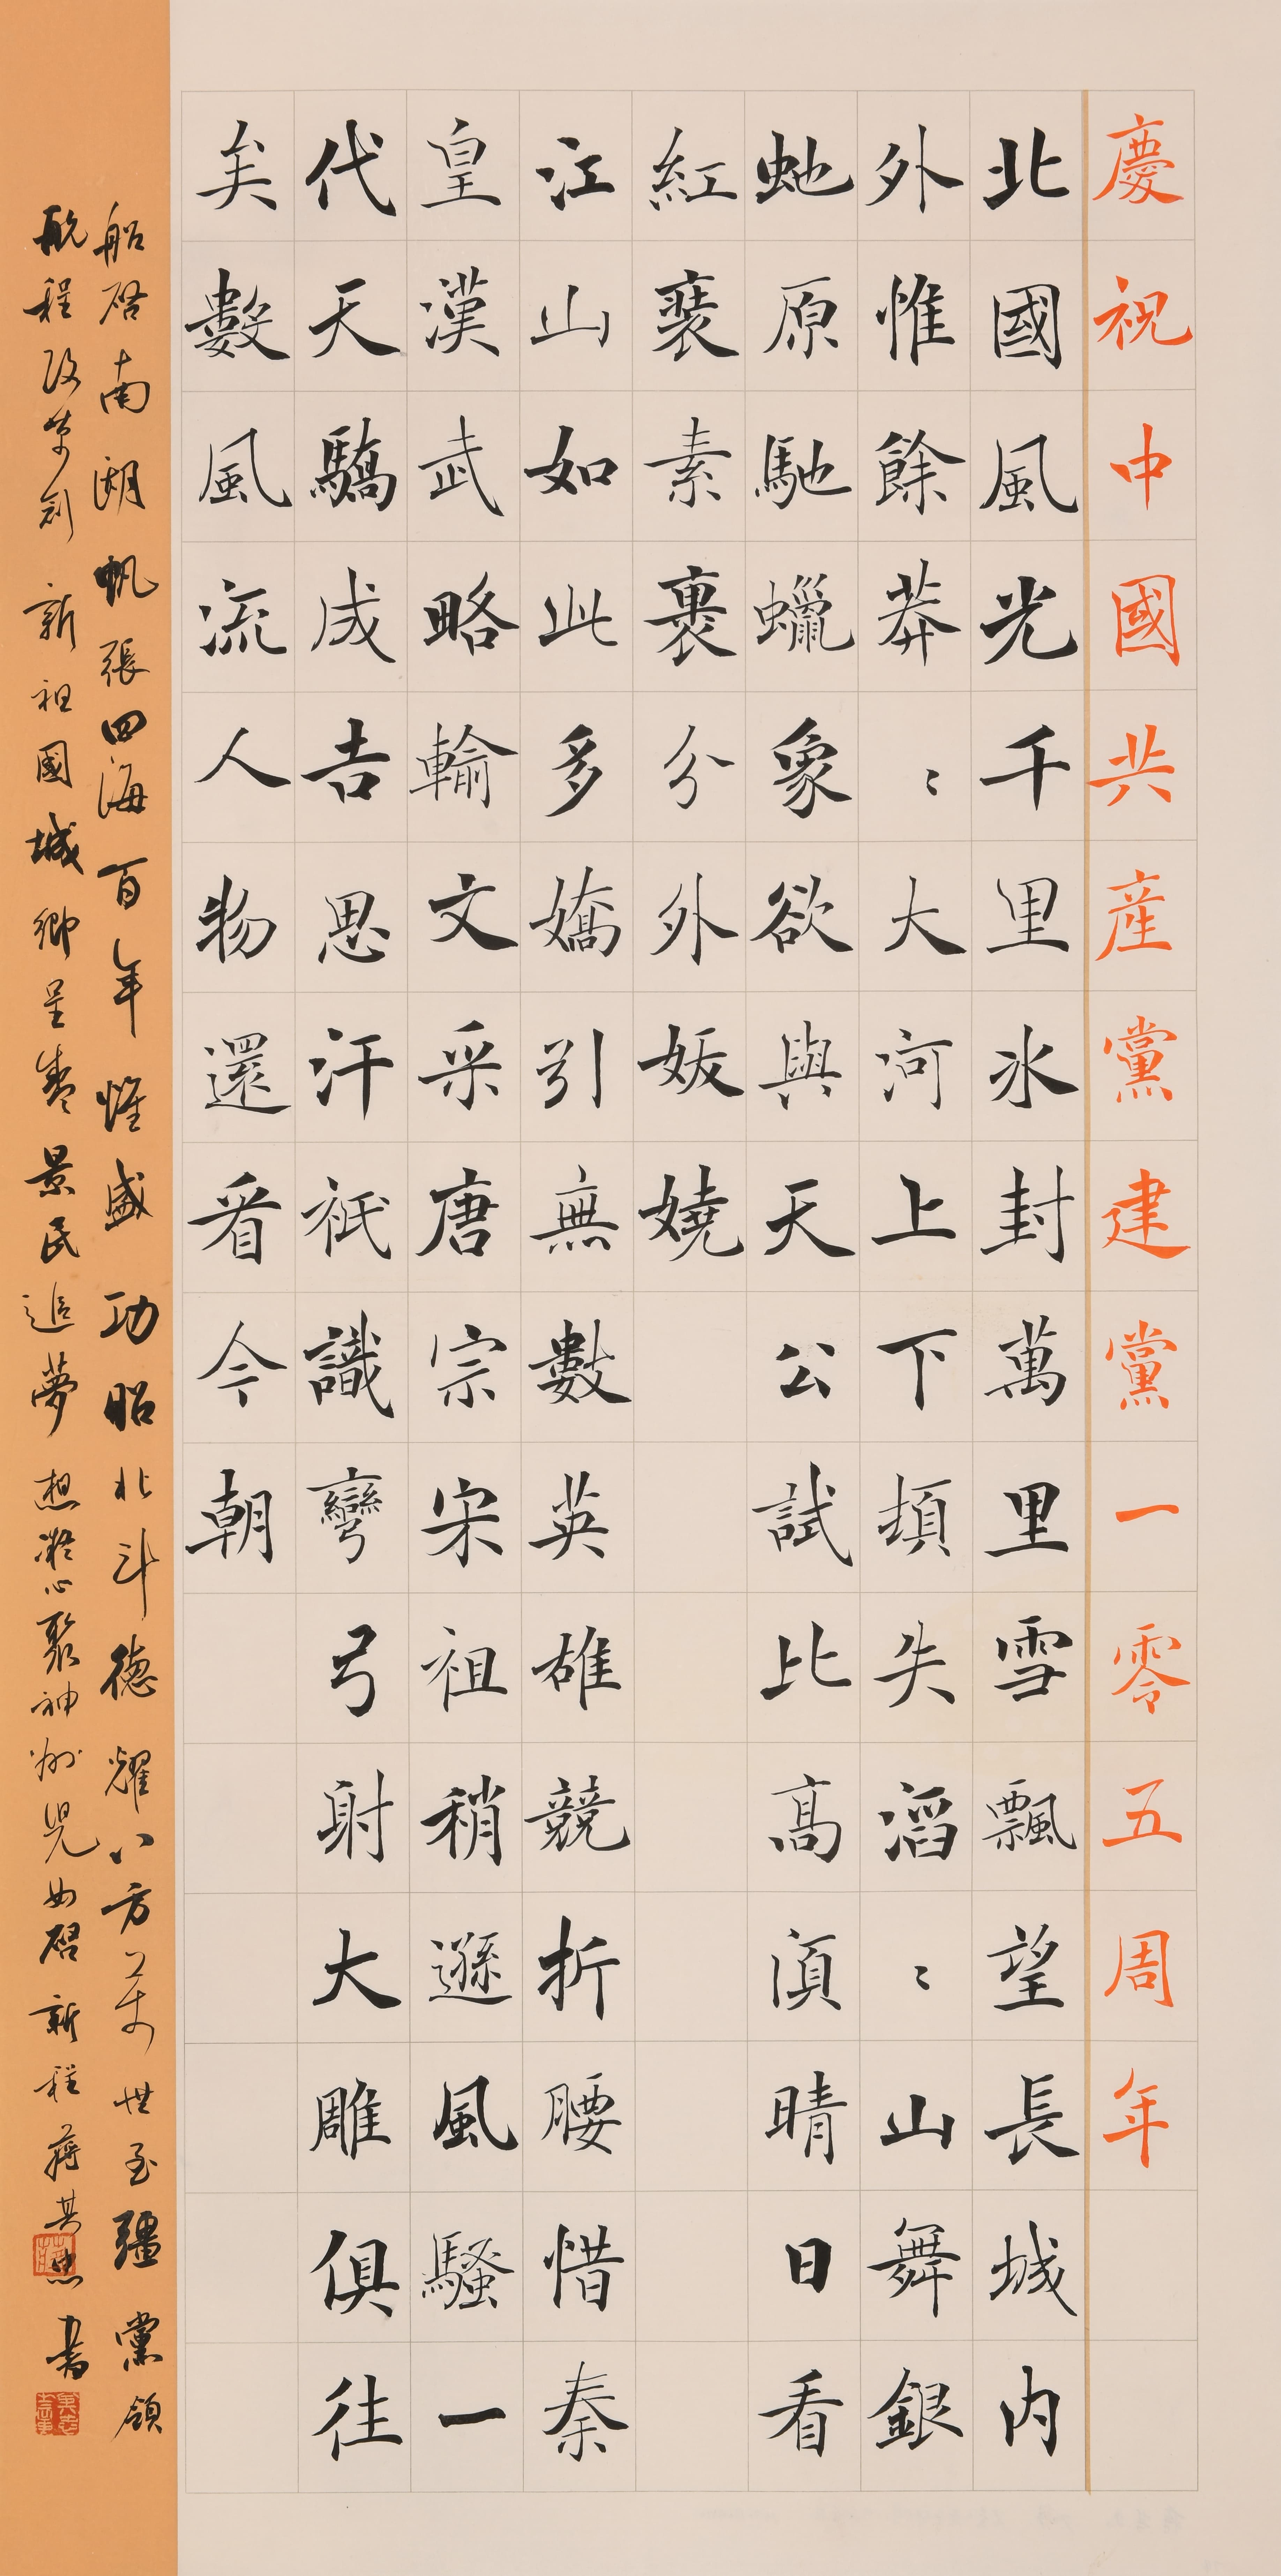 慶祝中國共産黨建黨一零五周年
北國風光千里冰封萬里雪飄望長城内
外惟餘莽〻大河上下頓失滔〻山舞銀
虵原馳蠟象欲與天公試比高須晴日看
紅裝素裹分外妖嬈
江山如此多嬌引無數英雄競折腰惜秦
皇漢武略輸文采唐宗宋祖稍遜風騷一
代天驕成吉思汗祇識彎弓射大雕俱往
矣數風流人物還看今朝
船啓南湖帆張四海百年惟盛功昭北斗德耀八方萬世无疆黨領
航程改革創新祖國城鄉呈景民追夢想凝心聚神州兒女啓新程蔣其忠書